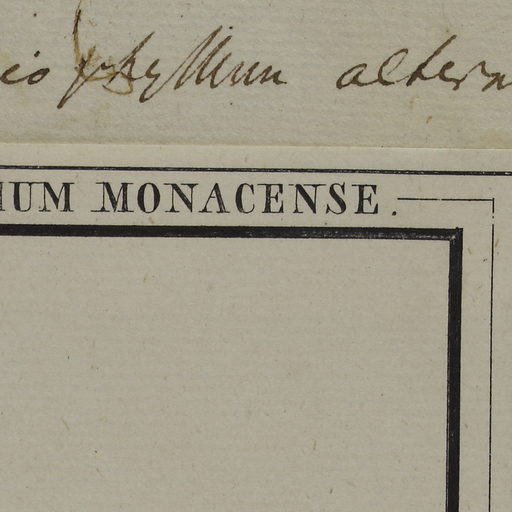 iophyllum altern
IUM MONACENSE.